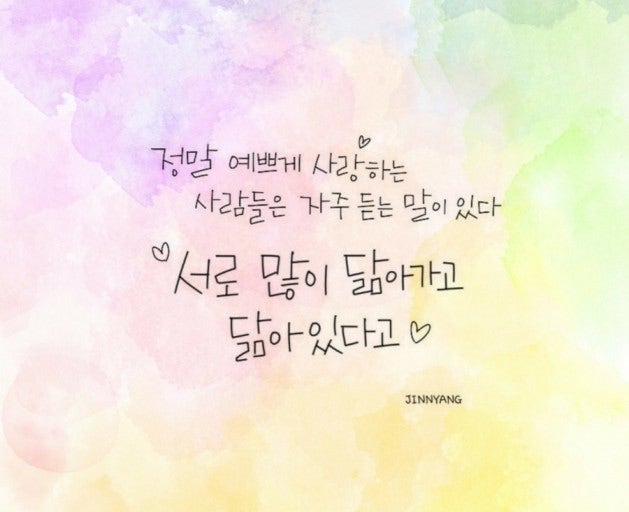 정말 예쁘게 사랑하는
사람들은 자주 듣는 말이 있다
서로 많이 닮아가고
닮아있다고
JINNYANG